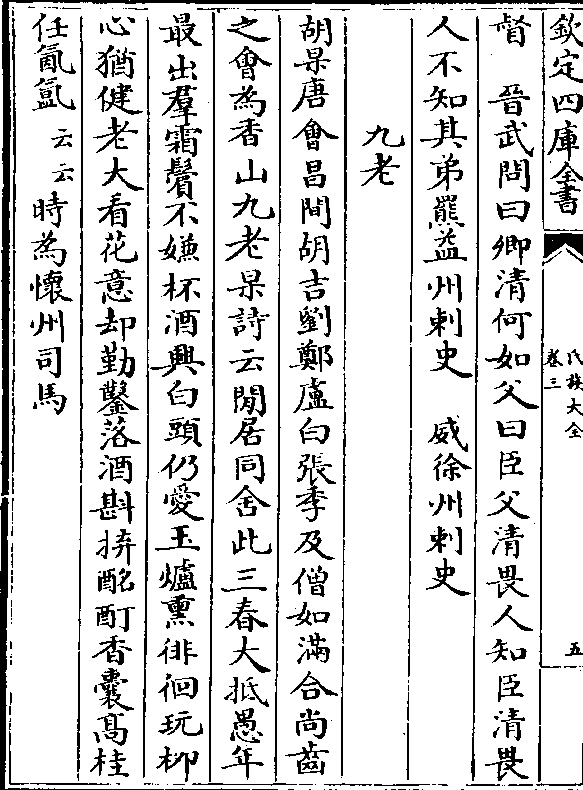 欽定四庫全書
氏族大全
卷三
五
督　晉武問曰卿清何如父曰臣父清畏人知臣清畏
人不知其弟羆益州刺史　威徐州刺史
九老
胡杲唐會昌間胡吉劉鄭盧白張季及僧如滿合尚齒
之會為香山九老杲詩云閒居同舍此三春大抵愚年
最出羣霜鬢不嫌杯酒興白頭仍愛玉爐熏徘徊玩柳
心猶健老大看花意却勤鑿落酒斟拚酩酊香囊高桂
任氤氲云云時為懷州司馬